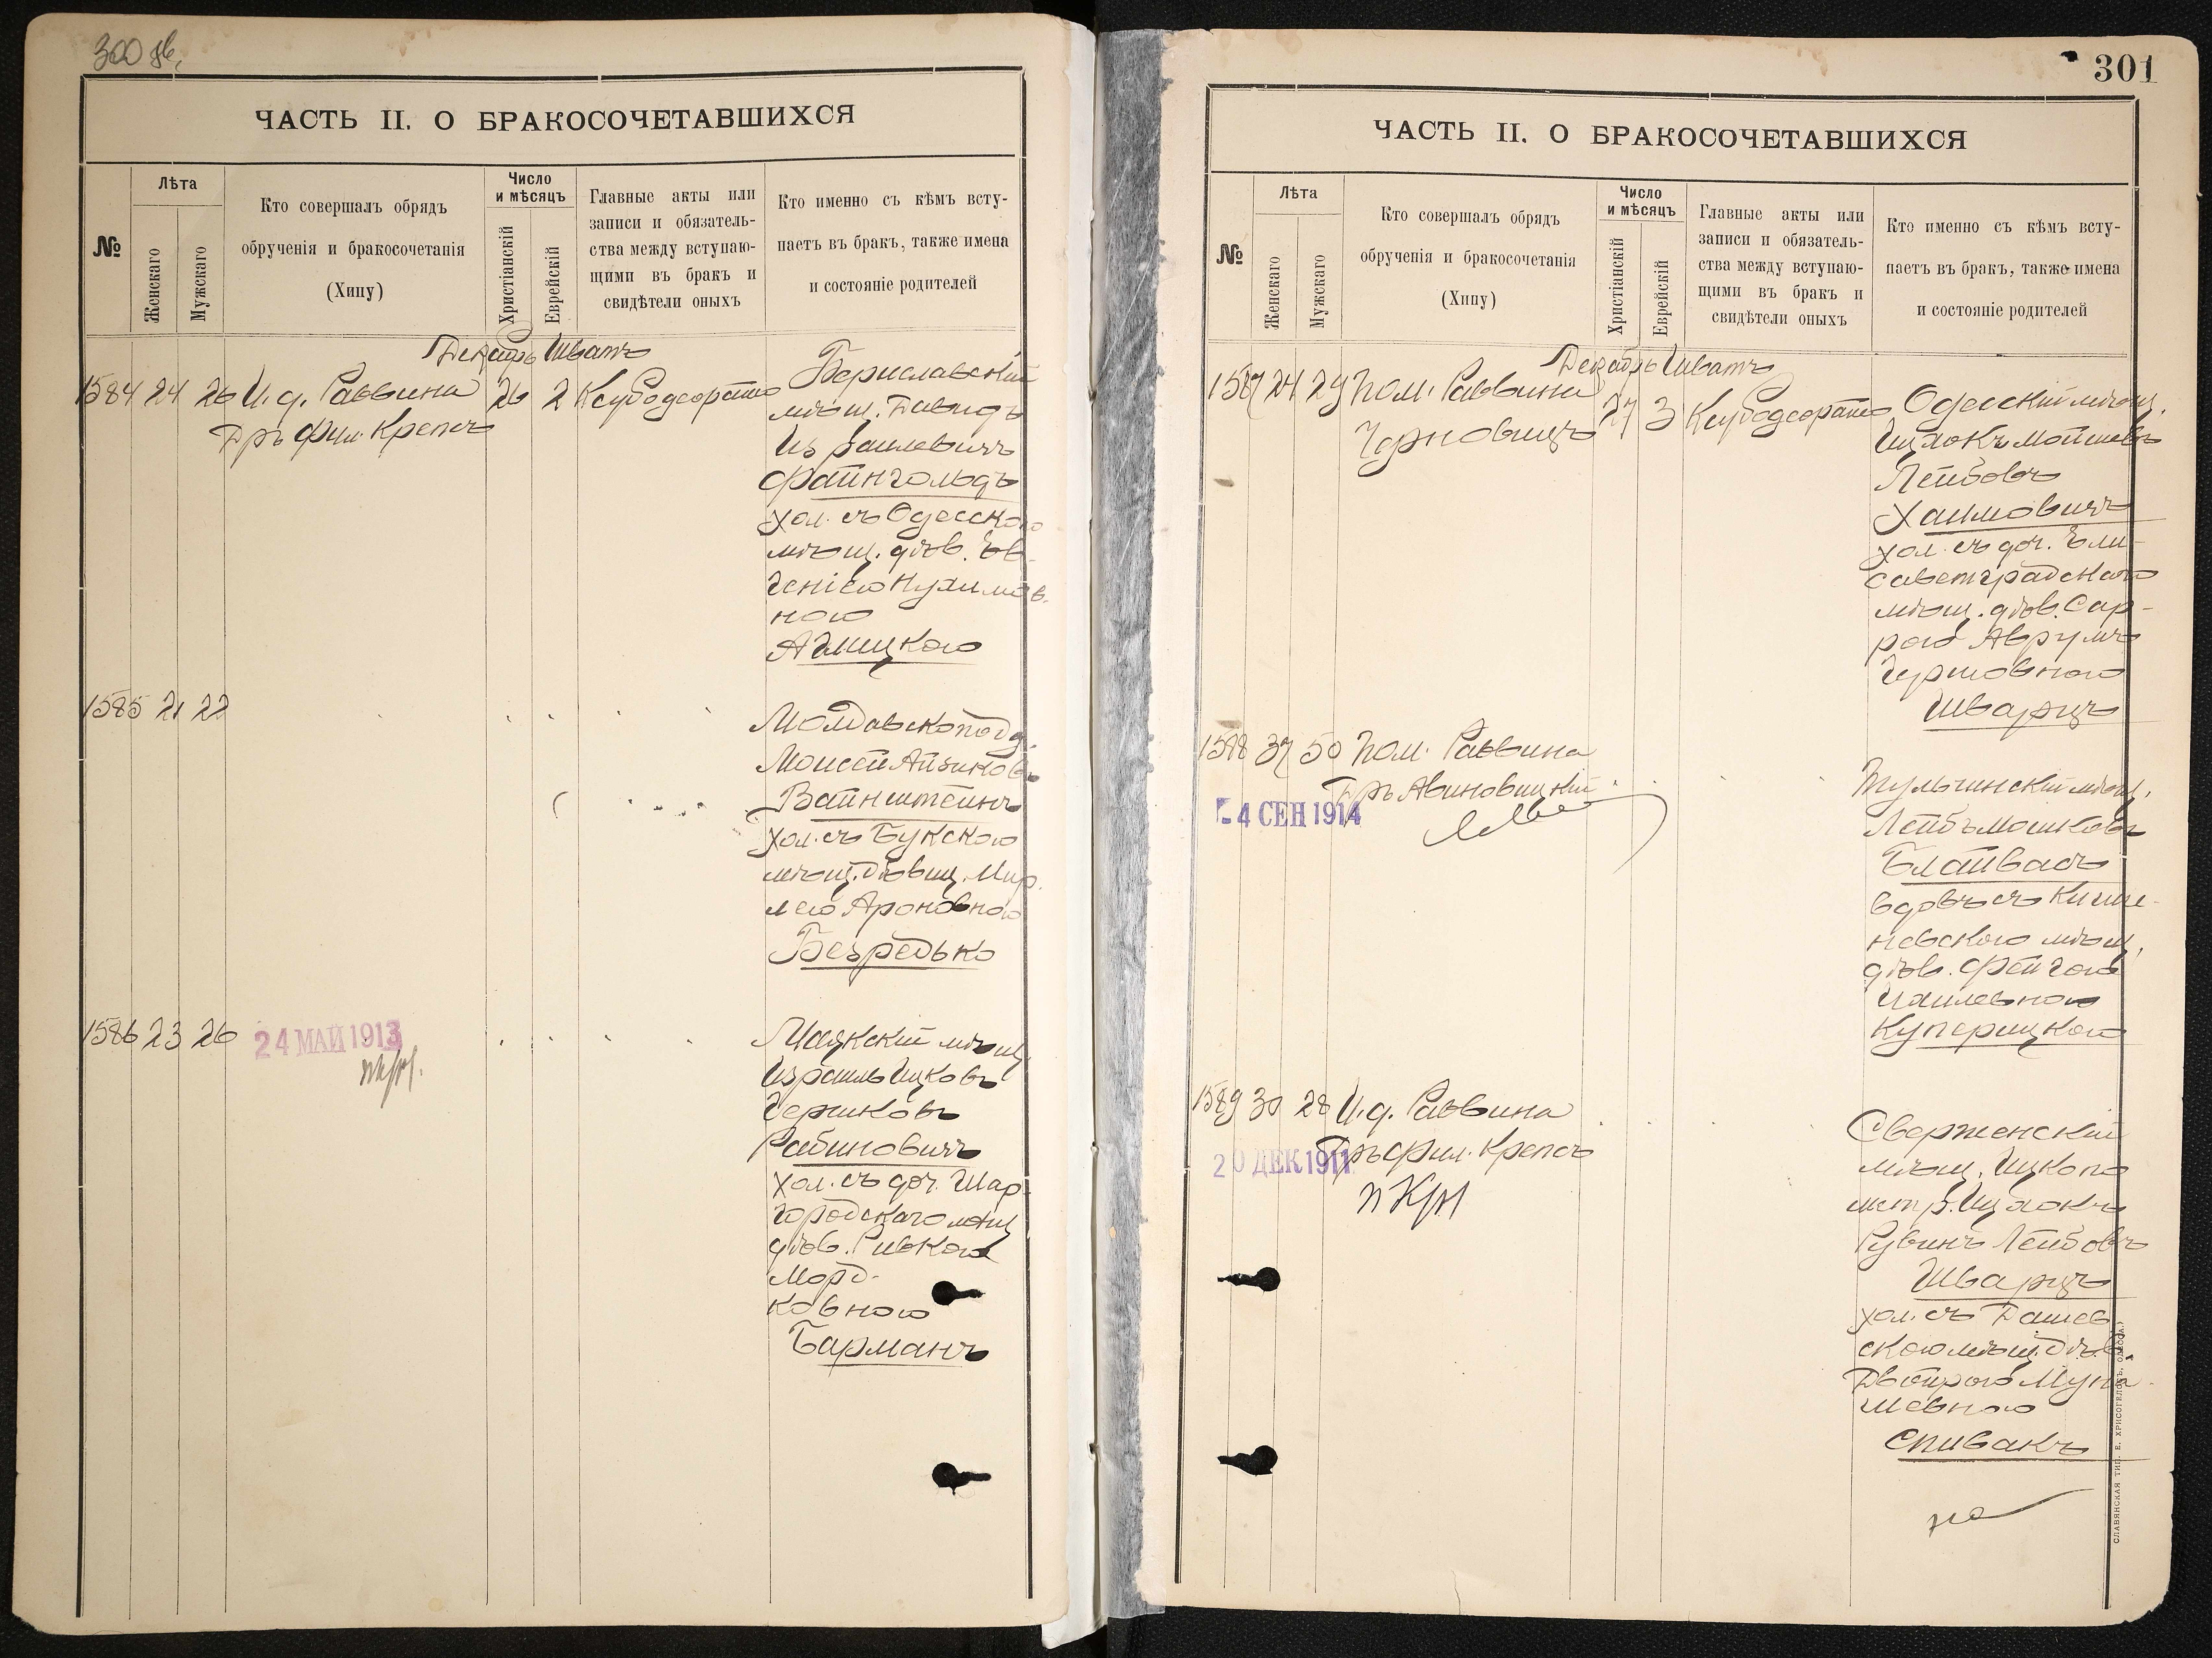 300 об.
ЧАСТЬ II. О БРАКОСОЧЕТАВШИХСЯ
№
Лѣта
Женскаго
Мужскаго
Кто совершалъ обрядъ
обрученія и бракосочетанія
(Хипу)
Число
и мѣсяцъ
Христіанскій
Еврейскій
Главные акты или
записи и обязатель-
ства между вступаю-
щими въ бракъ и
свидѣтели оныхъ
Кто именно съ кѣмъ всту-
паетъ въ бракъ, также имена
и состояніе родителей
Декабрь Шватъ
1584 24 26 И. д. Раввина 26 2
Дръ фил. Крепсъ
Бериславскій
мѣщ. Давидъ
Израилевичъ
Файнгольдъ
хол. съ Одесскою
мѣщ. дѣв. Ев-
геніею Нухимов-
ною
Аглицкою
1585 21 22
Молдавскоподд.
Моисей Айзиковъ
Вайнштейнъ
хол. съ Букскою
мѣщ. дѣвиц. Мир-
лею Ароновною
Безредько
1586 23 26
24 МАЙ 1913
Маякскій мѣщ.
Израиль Ицковъ
Гершковъ
Рабиновичъ
хол. съ доч. Шар-
городскаго мѣщ
дѣв. Ривкою
Морд-
ковною
Барманъ
301
ЧАСТЬ II. О БРАКОСОЧЕТАВШИХСЯ
№
Лѣта
Женскаго
Мужскаго
Кто совершалъ обрядъ
обрученія и бракосочетанія
(Хипу)
Число
и мѣсяцъ
Христіанскій
Еврейскій
Главные акты или
записи и обязатель-
ства между вступаю-
щими въ бракъ и
свидѣтели оныхъ
Кто именно съ кѣмъ всту-
паетъ въ бракъ, также имена
и состояніе родителей
Декабрь Шватъ
1587 24 29 Пом. Раввина 27 3
Черновицъ
Одесскій мѣщ.
Ицхокъ Мойшевъ
Лейбовъ
Хаимовичъ
хол. съ доч. Ели-
саветградскаго
мѣщ. дѣв. Сар-
рою Аврумъ
Гершовною
Шварцъ
1588 37 50 Пом. Раввина
Дръ Авиновицкій
4 СЕН 1914
Тульчинскій мѣщ.
Лейбъ Мошковъ
Блайвасъ
вдовъ съ Кише-
невскою мѣщ.
дѣв. Фейгою
Хаилевною
Куперицкою
1589 30 28 И. д. Раввина
Дръ фил. Крепсъ
20 ДЕК 1911
Сверженскій
мѣщ. Ицко по
метр. Ицхокъ
Рувинъ Лейбовъ
Шварцъ
хол. съ Дашев
скою мѣщ. дѣв.
Двойрою
Спивакъ
СЛАВЯНСКАЯ ТИП. Е. ХРИСОГЕЛОСЪ, ОДЕССА.